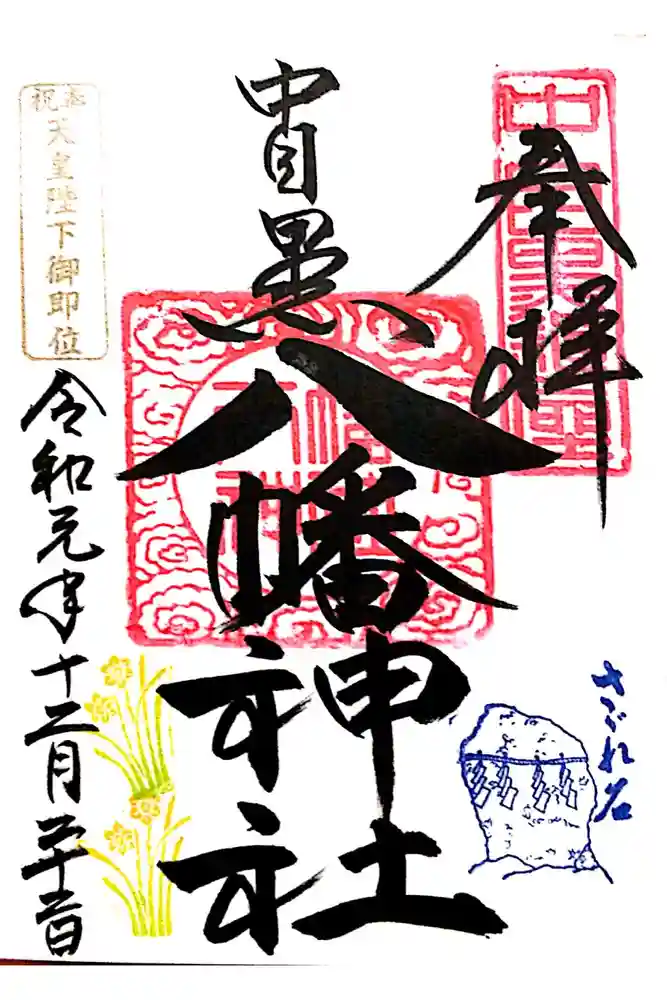 奉拝
中目黒鎮座
中目黒八幡神社
さざれ石
奉祝
天皇陛下御即位
令和元年十二月